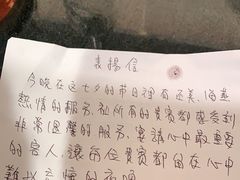 表揚信
今晚在這七夕的节日裡有还美,海燕
熱情的服务,让所有的貴賓都感受到
非常溫馨的服务,宴請心中最重要
的客人,讓每位貴賓都留在心中
難以忘懷的夜晚